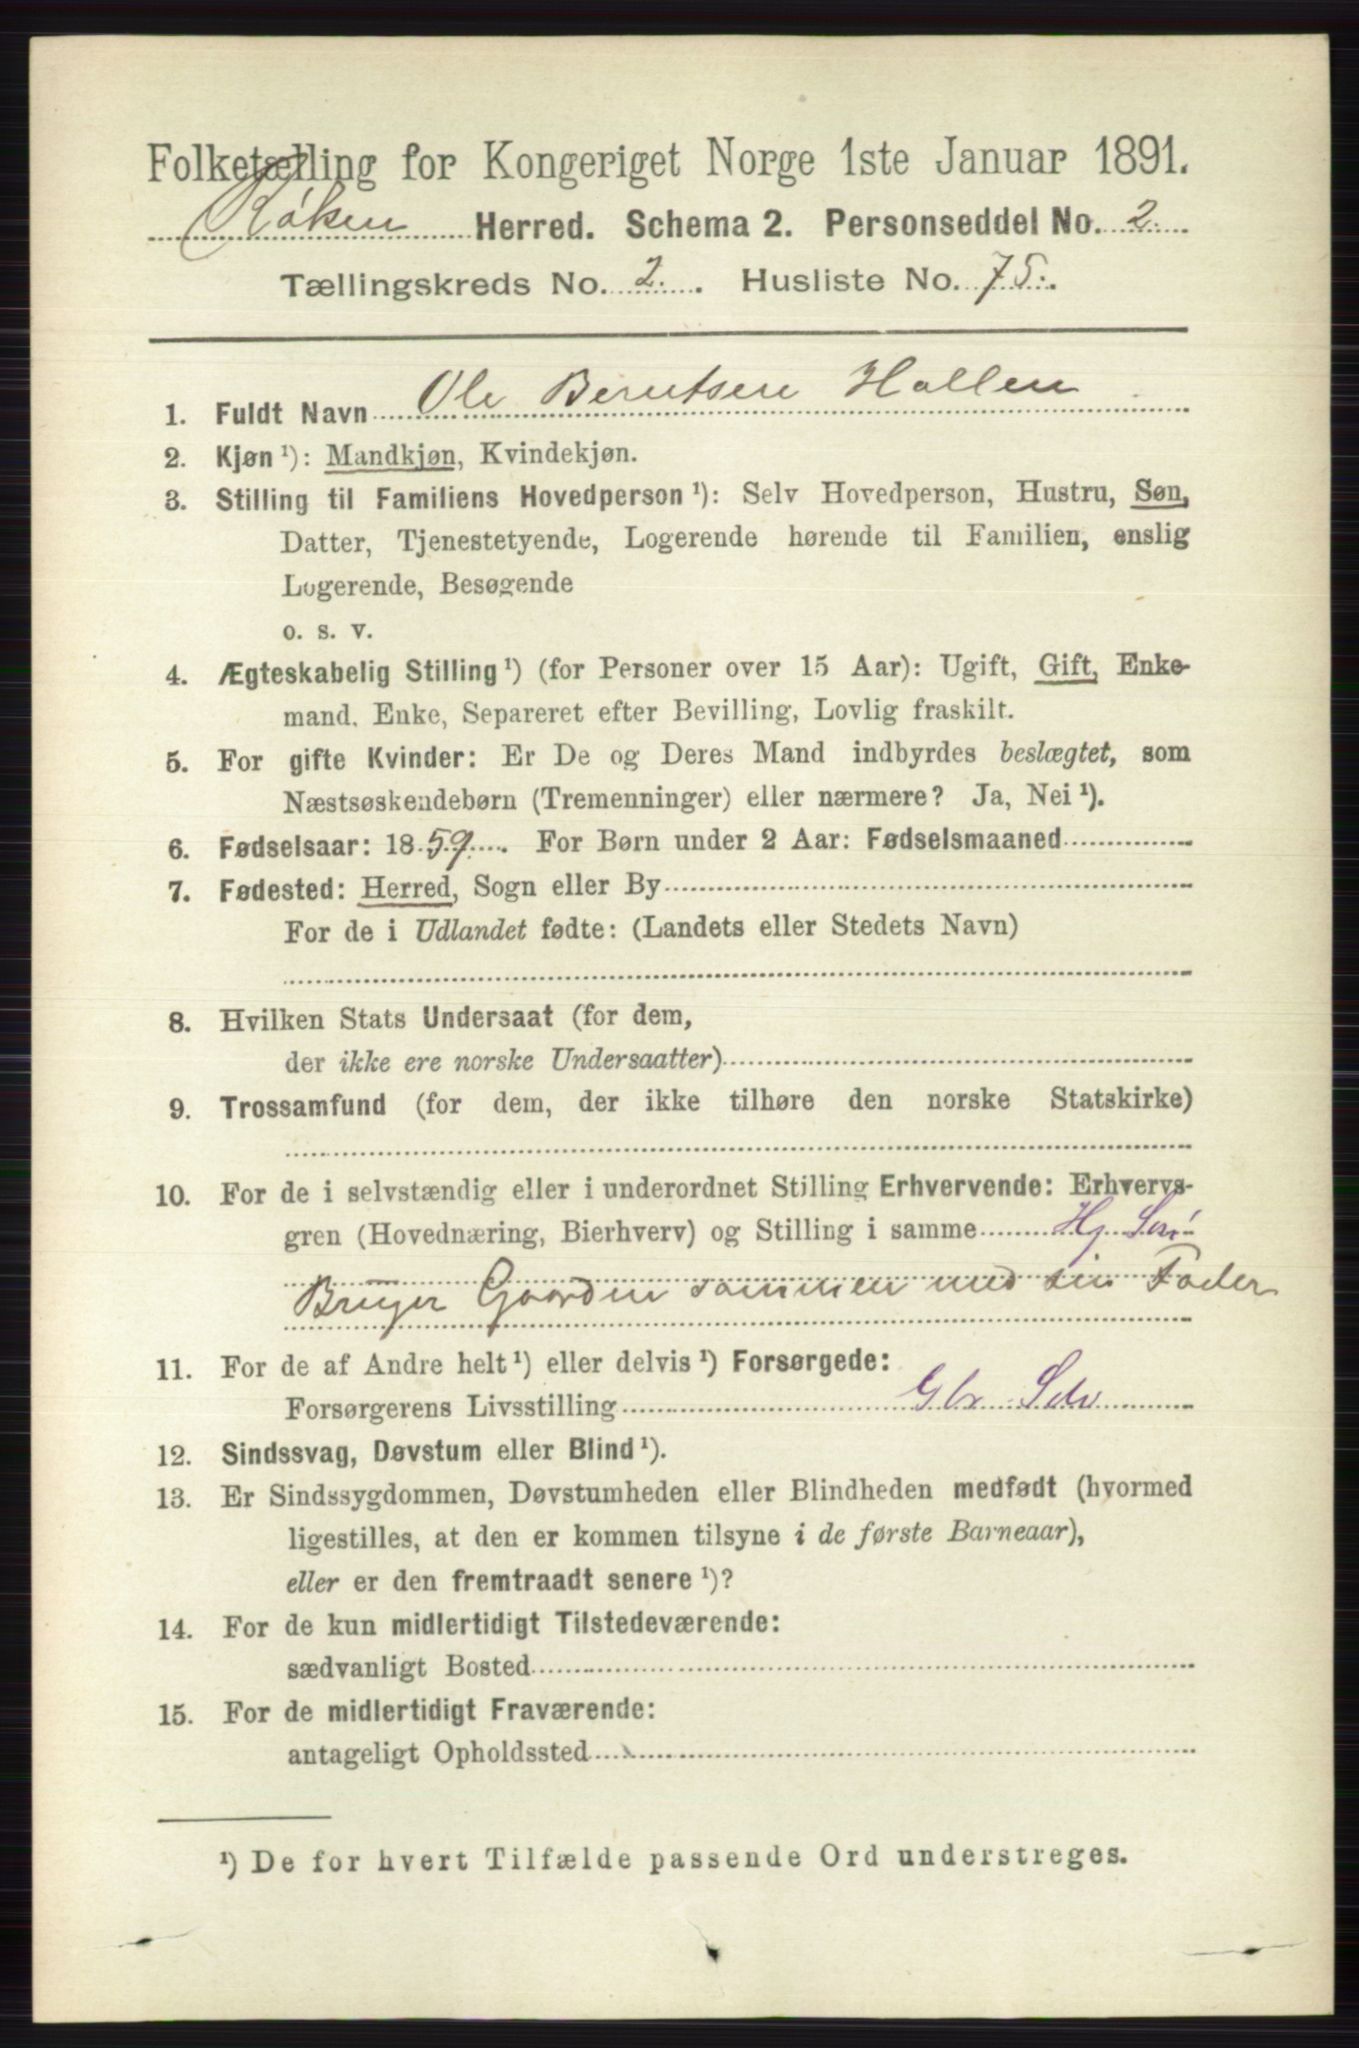 Folketælling for Kongeriget Norge 1ste Januar 1891.
Røken Herred. Schema 2. Personseddel No. 2.
Tællingskreds No. 2. Husliste No. 75.
1. Fuldt Navn Ole Berntsen Hallen
2. Kjøn¹): Mandkjøn, Kvindekjøn.
3. Stilling til Familiens Hovedperson¹): Selv Hovedperson, Hustru, Søn,
Datter, Tjenestetyende, Logerende hørende til Familien, enslig
Logerende, Besøgende
o. s. v.
4. Ægteskabelig Stilling¹) (for Personer over 15 Aar): Ugift, Gift, Enke-
mand, Enke, Separeret efter Bevilling, Lovlig fraskilt.
5. For gifte Kvinder: Er De og Deres Mand indbyrdes beslægtet, som
Næstsøskendebørn (Tremenninger) eller nærmere? Ja, Nei¹).
6. Fødselsaar: 1859. For Børn under 2 Aar: Fødselsmaaned
7. Fødested: Herred, Sogn eller By
For de i Udlandet fødte: (Landets eller Stedets Navn)
8. Hvilken Stats Undersaat (for dem,
der ikke ere norske Undersaatter)
9. Trossamfund (for dem, der ikke tilhøre den norske Statskirke)
10. For de i selvstændig eller i underordnet Stilling Erhvervende: Erhvervs-
gren (Hovednæring, Bierhverv) og Stilling i samme Hj.
Bruger Gaarden sammen med sin Fader
11. For de af Andre helt¹) eller delvis¹) Forsørgede:
Forsørgerens Livsstilling Gbr. Selv
12. Sindssvag, Døvstum eller Blind¹).
13. Er Sindssygdommen, Døvstumheden eller Blindheden medfødt (hvormed
ligestilles, at den er kommen tilsyne i de første Barneaar),
eller er den fremtraadt senere¹)?
14. For de kun midlertidigt Tilstedeværende:
sædvanligt Bosted
15. For de midlertidigt Fraværende:
antageligt Opholdssted
¹) De for hvert Tilfælde passende Ord understreges.